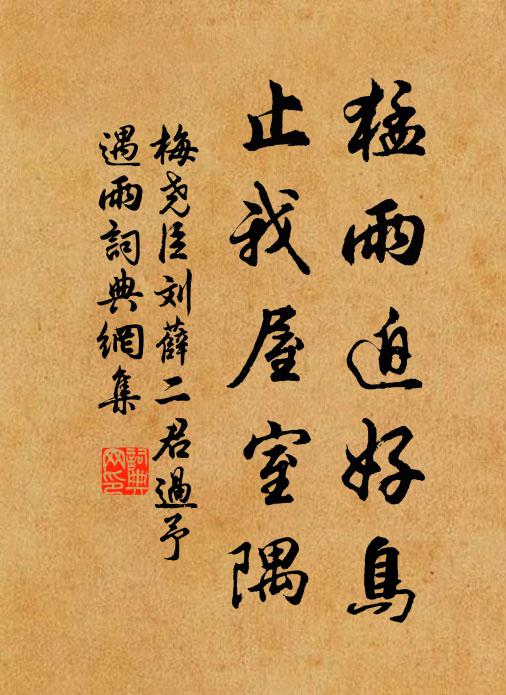 猛雨迫好鳥
止我屋室隅
梅尧臣刘薛二君過予
遇雨詞典網集
詞典網印